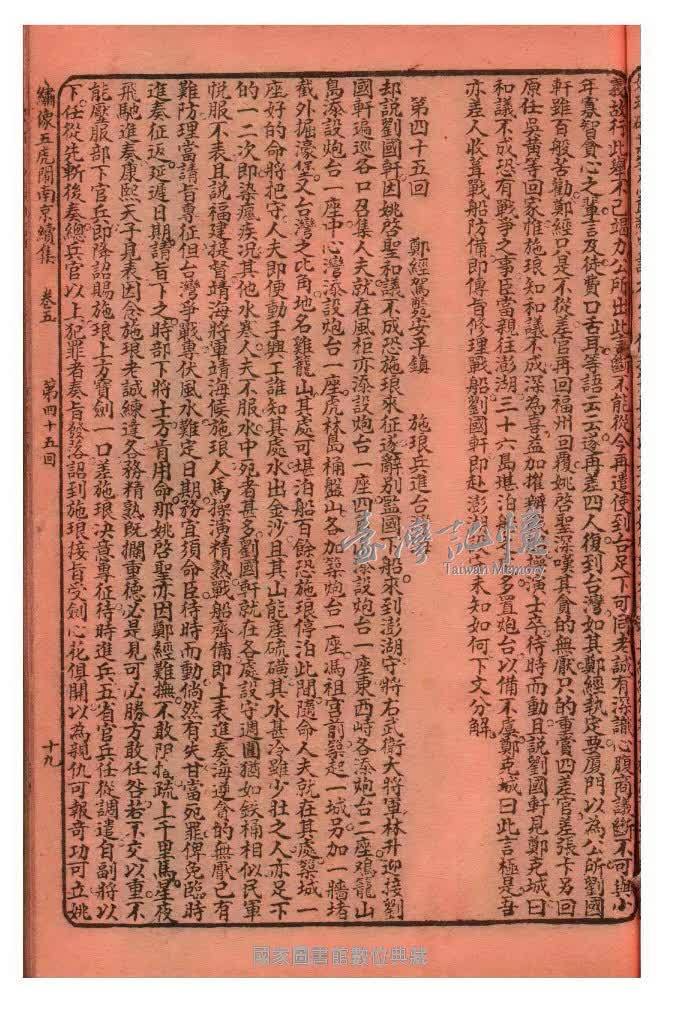 義故行此舉不已竭力公所出此言斷不能從今再遣使到台足下可同老誠有深識心腹商議斷不可與小
年寡智貪心之輩言及徒費口舌耳等語云云逐再差四人復到台灣如其鄭經執定要厦門以為公所劉國
軒雖百般苦勸鄭經只是不從差官再回福州回覆姚啓聖深嘆其貪的無厭只的重賞四差官差張卡另回
原任吳黃等回家惟施琅知和議不成深為喜益加摧 演士卒待時而動且說劉國軒見鄭克城曰
和議不成恐有戰爭之事臣當親往澎湖三十六島堪泊船 置炮台以備不虞鄭克城曰此言極是吾
亦差人收葺戰船防備即傳旨修理戰船劉國軒即赴澎 未知如何下文分解
第四十五回 鄭經駕薨安平鎮 施琅兵進台
却說劉國軒因姚啓聖和議不成恐施琅來征逐辭別監國下船來到澎湖守將右武衛大將軍林升迎接劉
國軒遍巡各口召集人夫就在風柜亦添設炮台一座四 添設炮台一座東西峙各添炮台一座鷄龍山
島添設炮台一座中心灣添設炮台一座虎林島桶盤山各加築炮台一座馮祖宮前築起一城另加一牆堵
截外掘濠堡又台灣之北角地名雞龍山其處可堪泊船百餘恐施琅停泊此間隨命人夫就在其處築城一
座好的命將把守人夫即便動手興工誰知其處水出金沙且其山能產硫磺其水甚冷雖少壯之人亦足下
的一二次即染瘟疾况其他水寒人夫不服水中宛者甚多劉國軒就在各處設守週圍猶如絞桶相似民軍
悅服不表且說福建提督靖海將軍靖海候施琅人馬操演精熟戰船齊備即上表進奏海逆貪的無厭已有
難防理當請旨專征但台灣爭戰專伏風水難定日期務宜須命臣待時而動倘然有失甘當宛罪俾免臨時
進奏征返延遲日期請旨下之時部下將士方肯用命那姚啓聖亦因鄭經難撫不敢即 疏上千里馬星夜
飛馳進奏康熙天子見表因念施琅老誠練達各務精熟既擱重德必是見可必勝方敢任咎若不交以重不
能壓服部下官兵即降詔賜施琅上方寶劍一口差施琅决意專征待時進兵五省官兵任從調遣自副將以
下任從先斬後奏總兵官以上犯罪者奏旨發落詔到施琅接旨受劍心花俱開以為親仇可報奇功可立姚
繡像五虎鬧南京續集 卷五 第四十五回 十九
臺灣記憶
Taiwan Memory
國家圖書館數位典藏